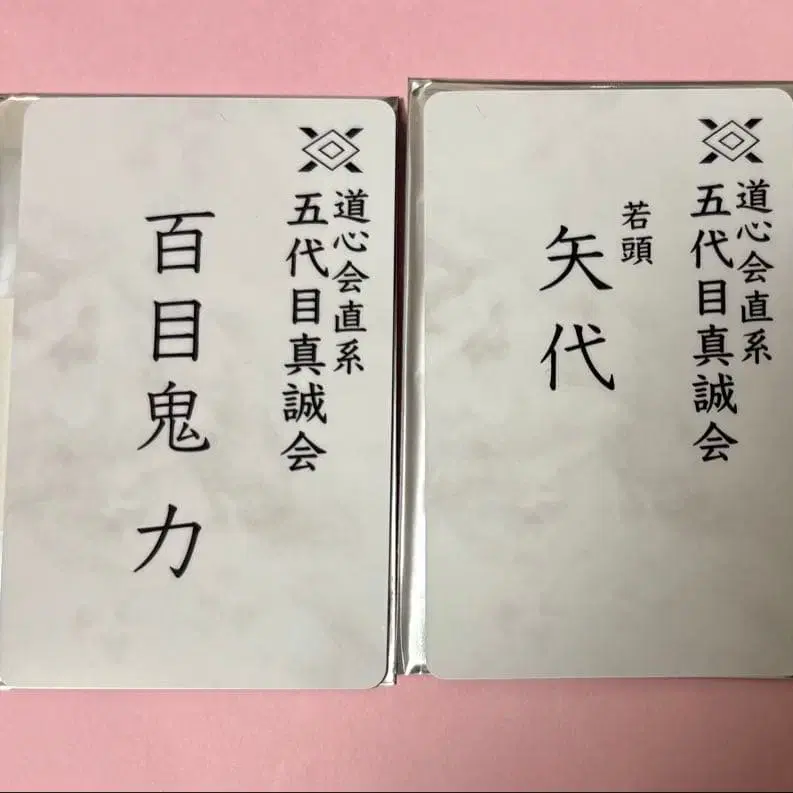 道心会直系
五代目真誠会
百目鬼 力
道心会直系
五代目真誠会
若頭
矢代